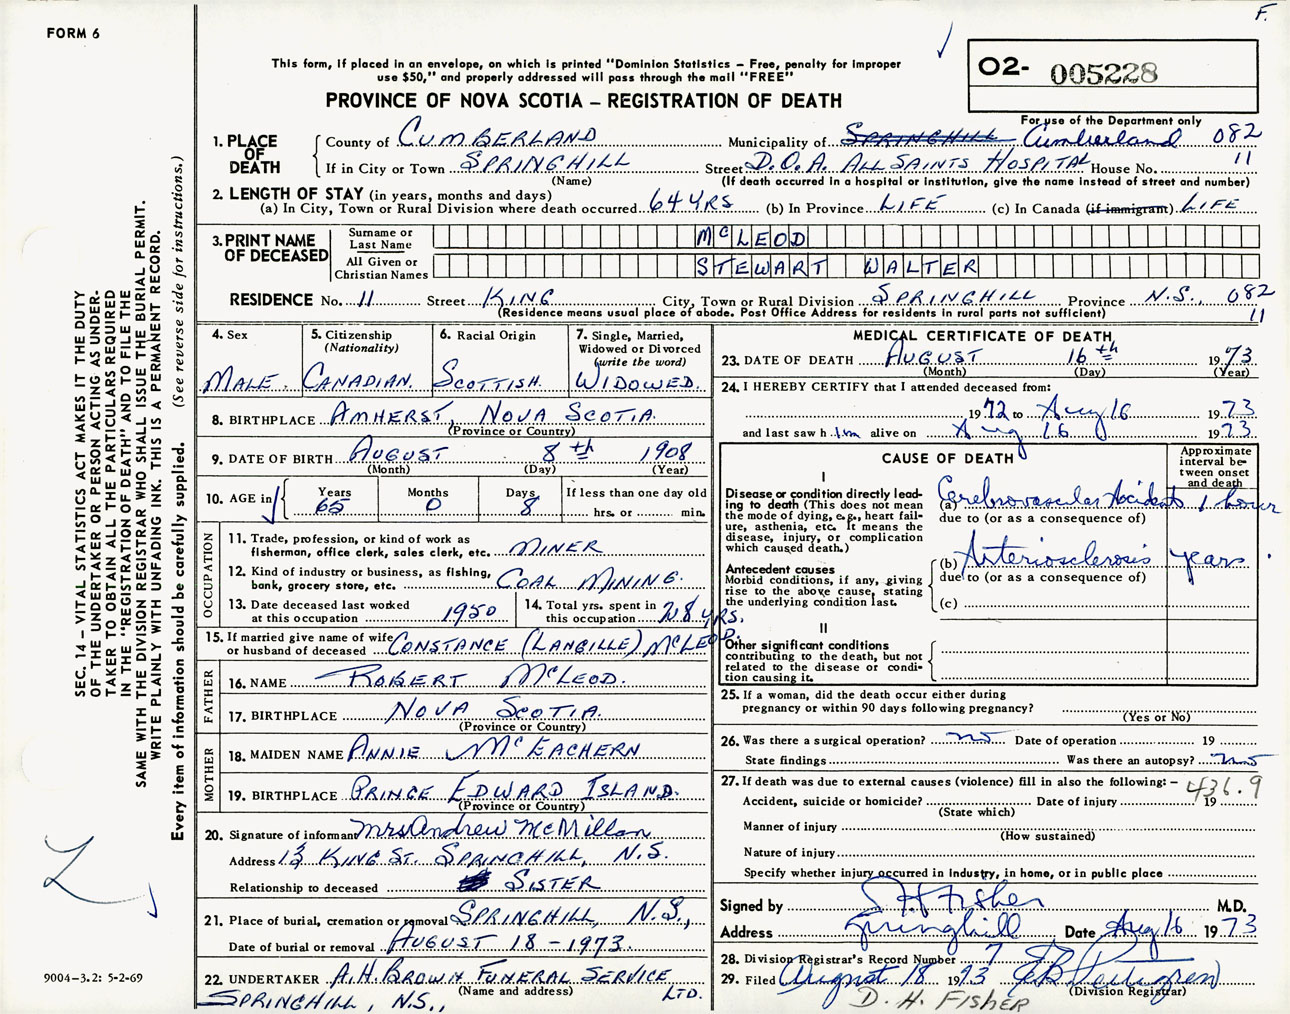 F.
FORM 6
This form, if placed in an envelope, on which is printed "Dominion Statistics – Free, penalty for improper
use $50," and properly addressed will pass through the mail "FREE"
PROVINCE OF NOVA SCOTIA – REGISTRATION OF DEATH
02- 005228
For use of the Department only
1. PLACE OF DEATH
County of CUMBERLAND Municipality of SPRINGHILL Cumberland 082
If in City or Town SPRINGHILL Street D.O.A. ALL SAINTS HOSPITAL House No. 11
(Name) (If death occurred in a hospital or institution, give the name instead of street and number)
2. LENGTH OF STAY (in years, months and days)
(a) In City, Town or Rural Division where death occurred 64 YRS (b) In Province LIFE (c) In Canada (if immigrant) LIFE
3. PRINT NAME OF DECEASED
Surname or Last Name McLEOD
All Given or Christian Names STEWART WALTER
RESIDENCE No. 11 Street KING City, Town or Rural Division SPRINGHILL Province N.S., 082
(Residence means usual place of abode. Post Office Address for residents in rural parts not sufficient) 11
4. Sex
MALE
5. Citizenship (Nationality)
CANADIAN
6. Racial Origin
SCOTTISH
7. Single, Married, Widowed or Divorced (write the word)
WIDOWED
8. BIRTHPLACE AMHERST, NOVA SCOTIA
(Province or Country)
9. DATE OF BIRTH AUGUST 8th 1908
(Month) (Day) (Year)
10. AGE in Years Months Days If less than one day old
65 0 8 hrs. or min.
OCCUPATION
11. Trade, profession, or kind of work as
fisherman, office clerk, sales clerk, etc. MINER
12. Kind of industry or business, as fishing,
bank, grocery store, etc. COAL MINING
13. Date deceased last worked
at this occupation 1950
14. Total yrs. spent in
this occupation 28 YRS.
15. If married give name of wife
or husband of deceased CONSTANCE (LANGILLE) McLEOD.
FATHER
16. NAME ROBERT McLEOD.
17. BIRTHPLACE NOVA SCOTIA
(Province or Country)
MOTHER
18. MAIDEN NAME ANNIE McEACHERN
19. BIRTHPLACE PRINCE EDWARD ISLAND.
(Province or Country)
20. Signature of informant Mrs Andrew McMillan
Address 13 KING ST. SPRINGHILL, N.S.
Relationship to deceased SISTER
21. Place of burial, cremation or removal SPRINGHILL, N.S.,
Date of burial or removal AUGUST 18 - 1973.
22. UNDERTAKER A.H. BROWN FUNERAL SERVICE LTD.
(Name and address)
SPRINGHILL, N.S.,
MEDICAL CERTIFICATE OF DEATH
23. DATE OF DEATH AUGUST 16th 1973
(Month) (Day) (Year)
24. I HEREBY CERTIFY that I attended deceased from:
1972 to Aug 16 1973
and last saw him alive on Aug 16 1973
CAUSE OF DEATH
Approximate interval between onset and death
I
Disease or condition directly lead-
ing to death (This does not mean
the mode of dying, e.g., heart fail-
ure, asthenia, etc. It means the
disease, injury, or complication
which caused death.)
(a) Cerebrovascular Accident 1 hour
due to (or as a consequence of)
Antecedent causes
Morbid conditions, if any, giving
rise to the above cause, stating
the underlying condition last.
(b) Arteriosclerosis years
due to (or as a consequence of)
(c)
II
Other significant conditions
contributing to the death, but not
related to the disease or condi-
tion causing it.
25. If a woman, did the death occur either during
pregnancy or within 90 days following pregnancy?
(Yes or No)
26. Was there a surgical operation? no Date of operation 19
State findings Was there an autopsy? no
27. If death was due to external causes (violence) fill in also the following: – 436.9
Accident, suicide or homicide? Date of injury 19
(State which)
Manner of injury
(How sustained)
Nature of injury
Specify whether injury occurred in industry, in home, or in public place
Signed by D H Fisher M.D.
Address Springhill Date Aug 16 1973
28. Division Registrar's Record Number 7
29. Filed August 18 1973
(Division Registrar)
D. H. FISHER
SEC. 14 – VITAL STATISTICS ACT MAKES IT THE DUTY
OF THE UNDERTAKER OR PERSON ACTING AS UNDER-
TAKER TO OBTAIN ALL THE PARTICULARS REQUIRED
IN THE "REGISTRATION OF DEATH" AND TO FILE THE
SAME WITH THE DIVISION REGISTRAR WHO SHALL ISSUE THE BURIAL PERMIT.
WRITE PLAINLY WITH UNFADING INK. THIS IS A PERMANENT RECORD.
Every item of information should be carefully supplied. (See reverse side for instructions.)
9004-3.2: 5-2-69